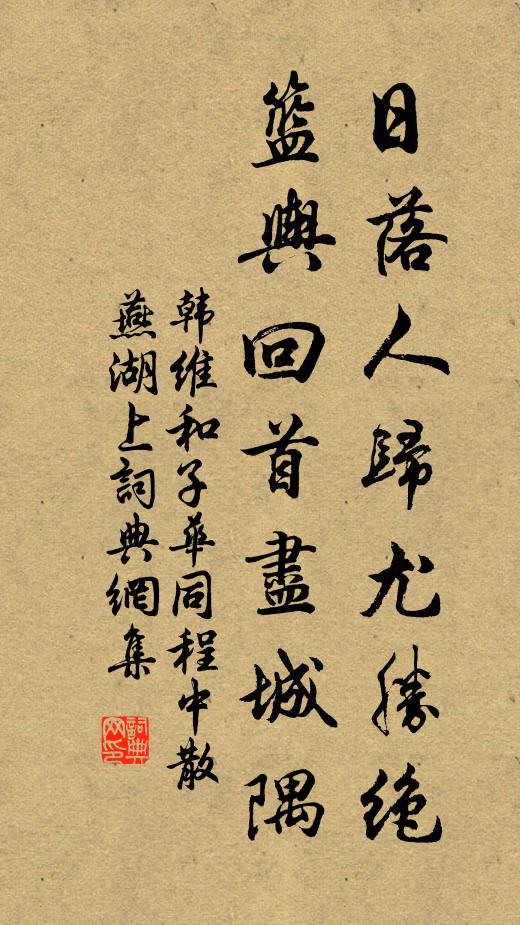 日落人歸尤勝絶
籃輿回首盡城隅
韩維和子華同程中散
燕湖上詞典網集
詞典網印